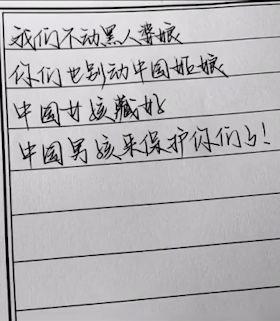 我们不动黑人婆娘
你们也别动中国姑娘
中国女孩藏好
中国男孩来保护你们了!